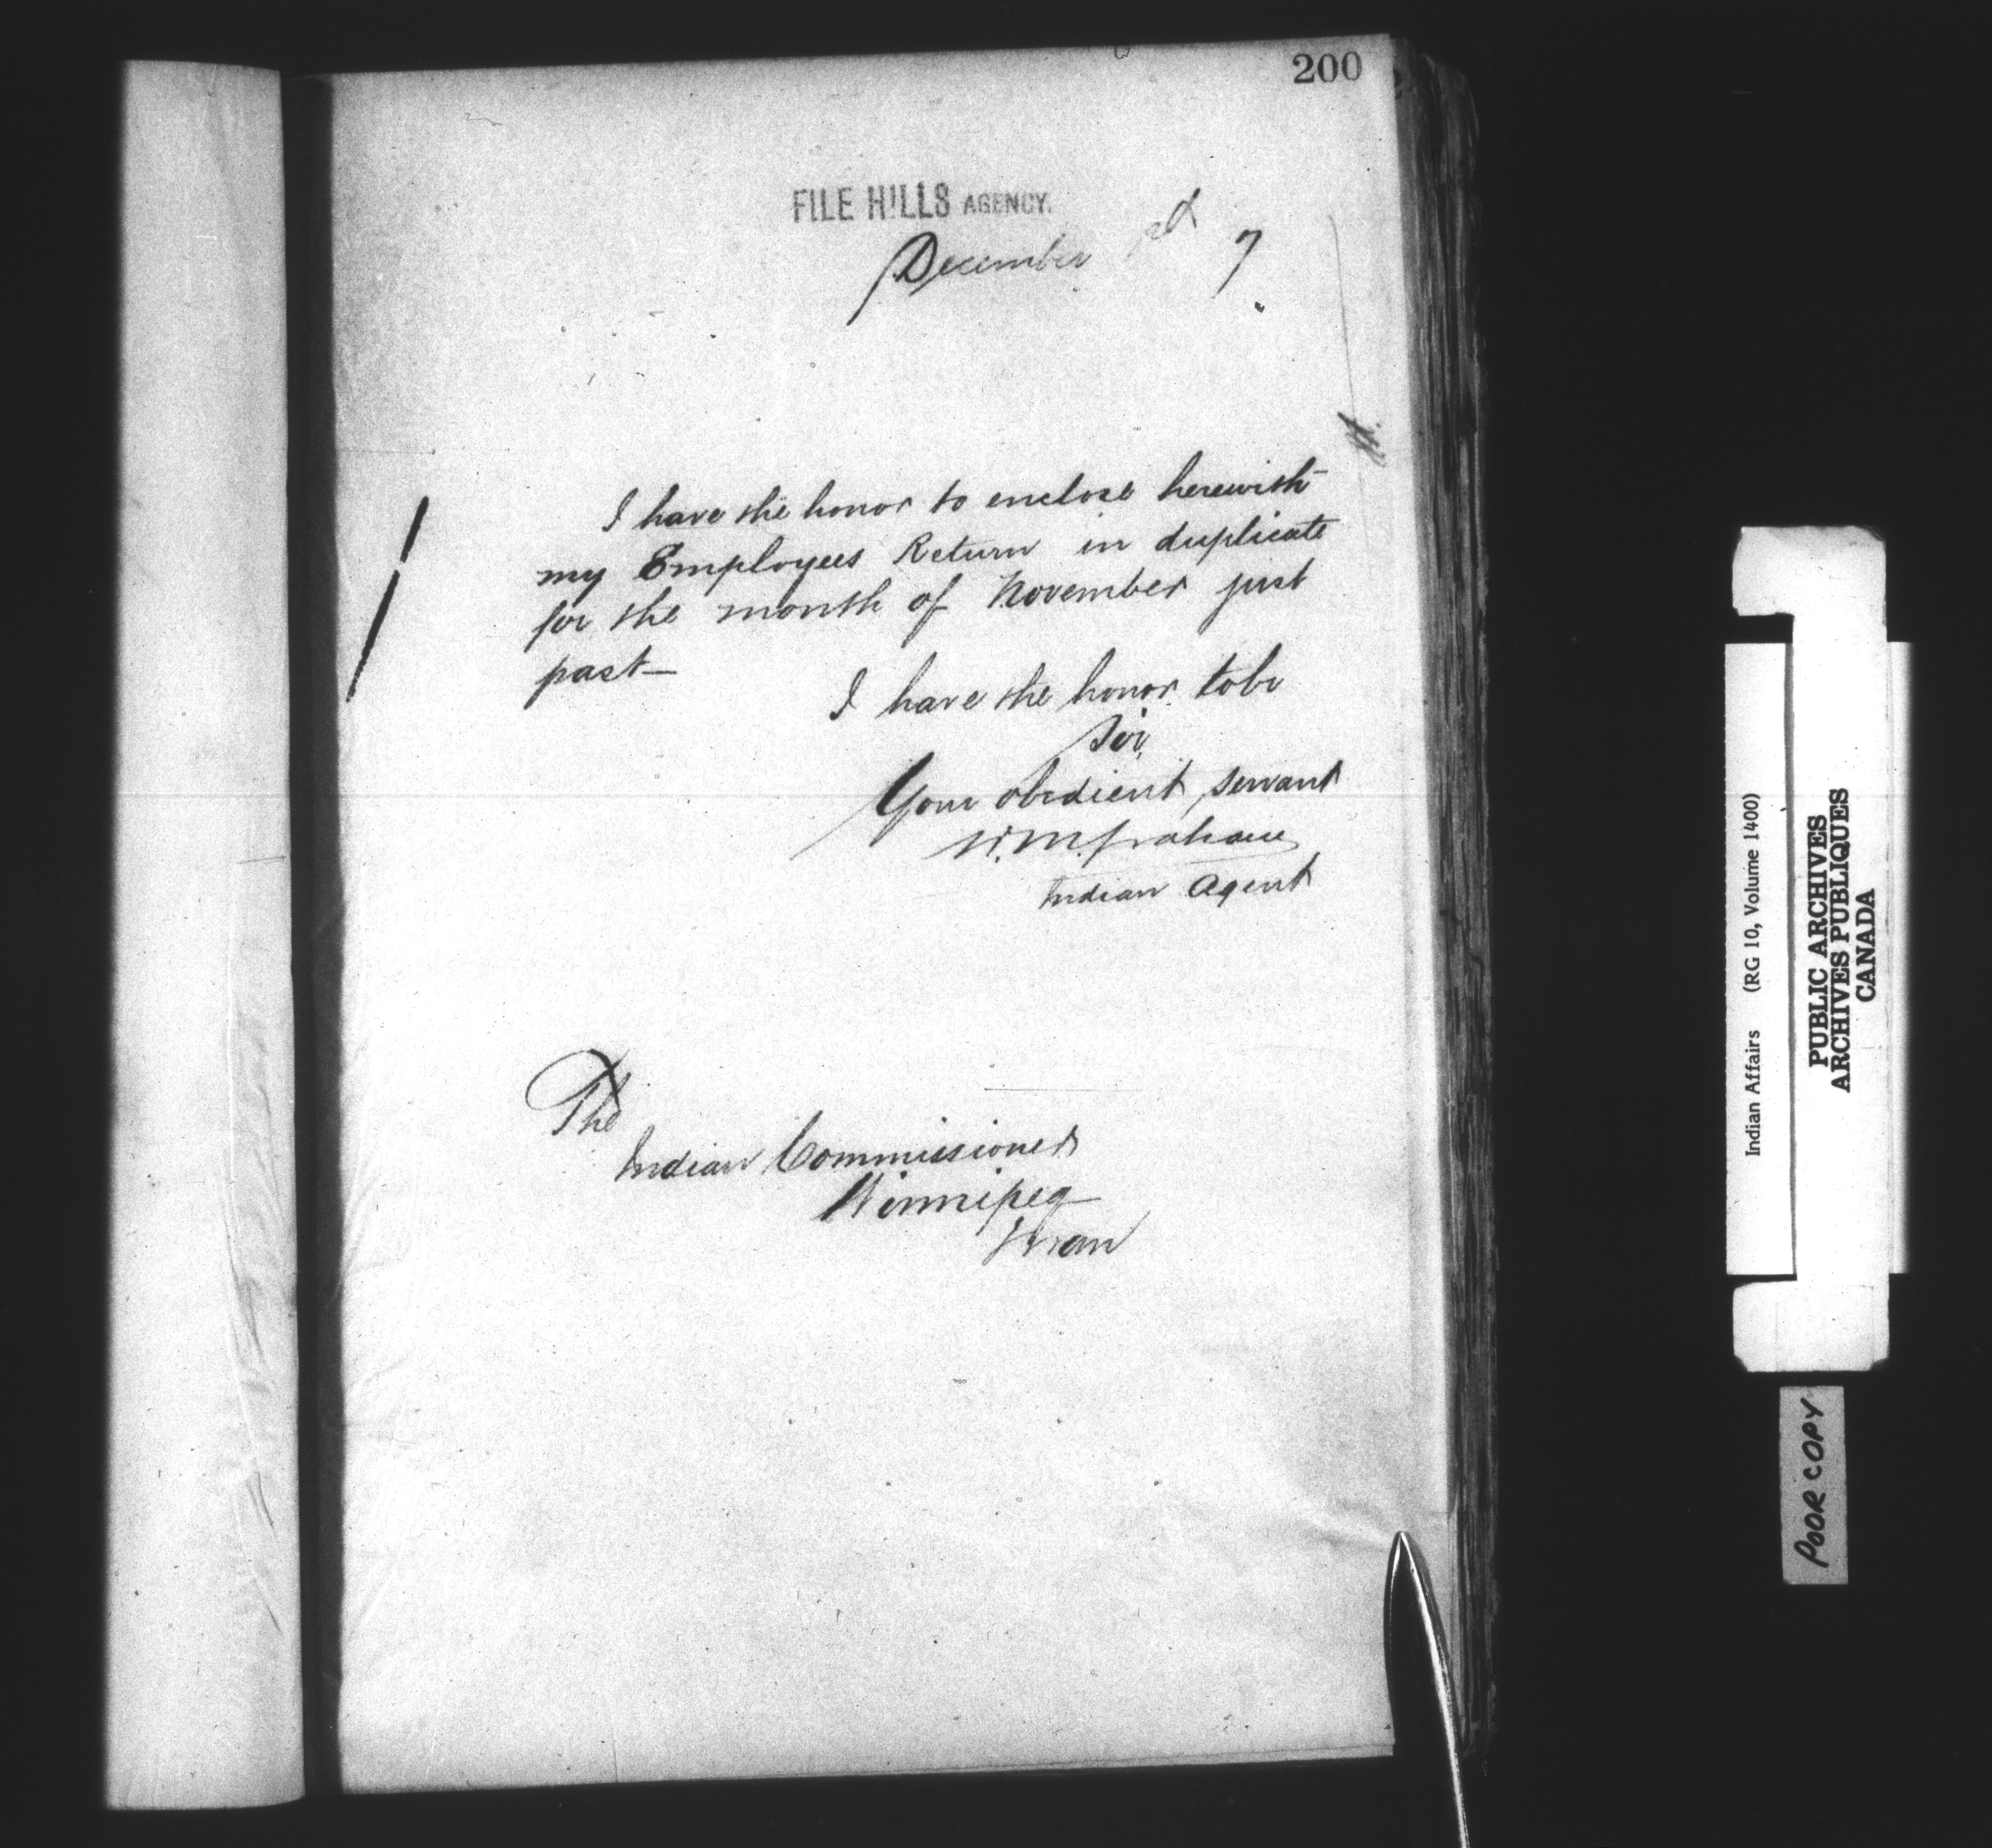 200
FILE HILLS AGENCY.
December 2d 7
I have the honor to enclose herewith
my Employees Return in duplicate
for the month of November just
past—
I have the honor to be
Sir,
Your obedient servant
W.M. Graham
Indian Agent
The
Indian Commissioner
Winnipeg
Man
Indian Affairs (RG 10, Volume 1400)
PUBLIC ARCHIVES
ARCHIVES PUBLIQUES
CANADA
POOR COPY